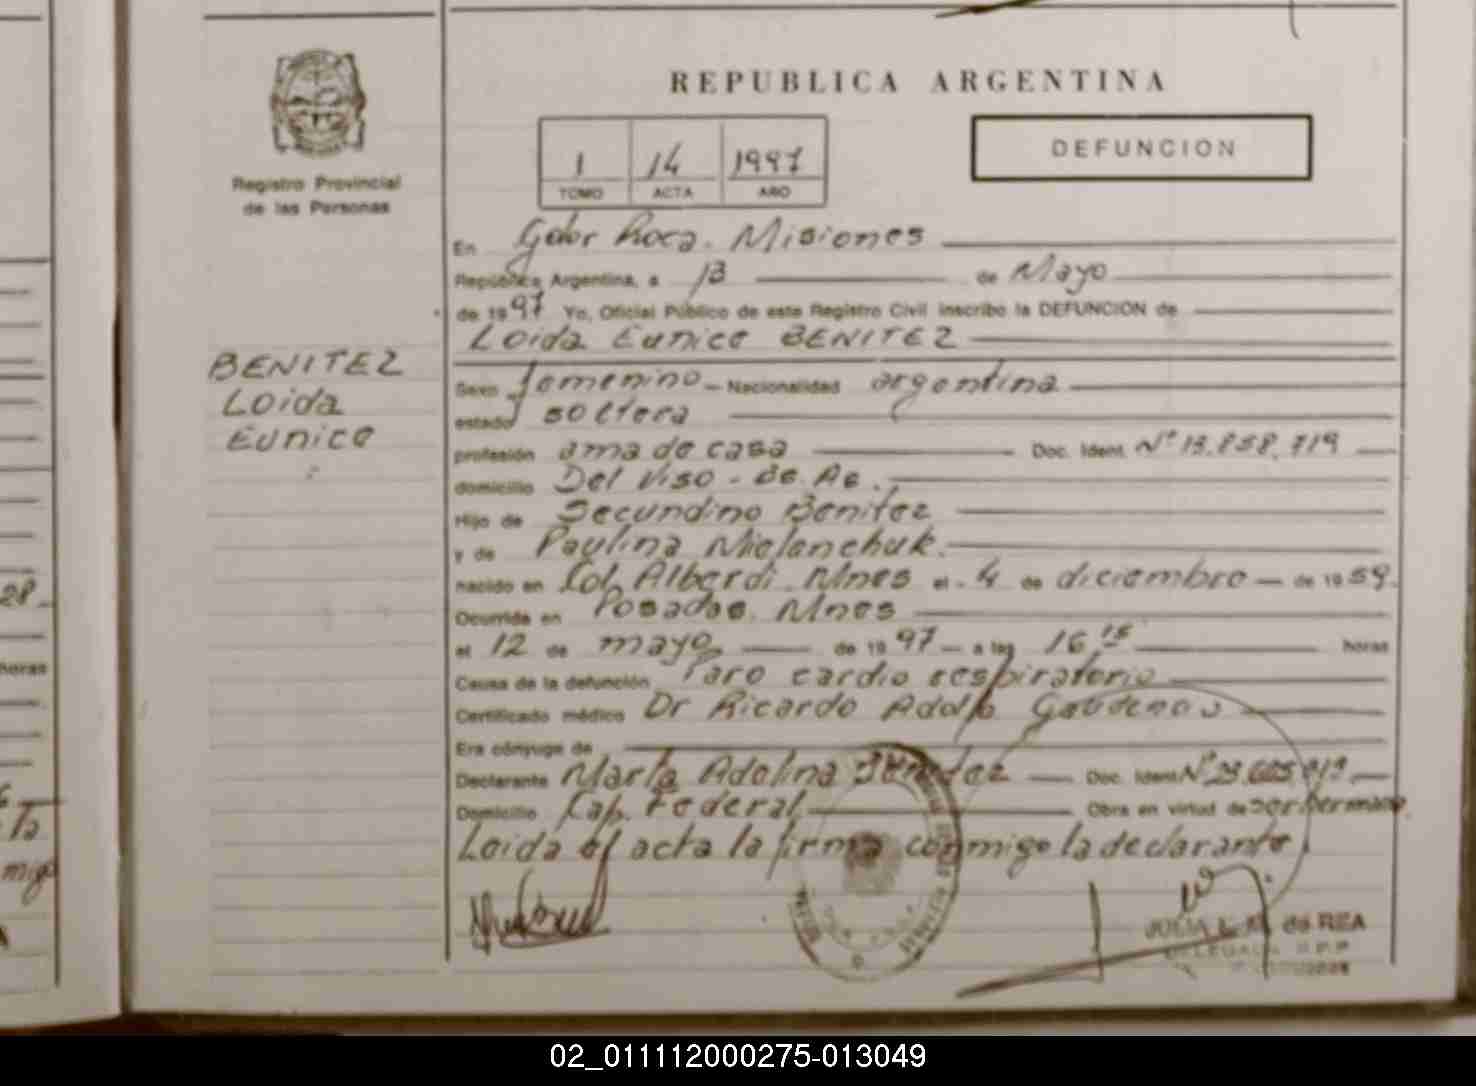 REPUBLICA ARGENTINA
Registro Provincial
de las Personas
1 14 1997
TOMO ACTA AÑO
DEFUNCION
En Gdor Roca. Misiones
República Argentina, a 13 de Mayo
de 1997 Yo, Oficial Público de este Registro Civil inscribo la DEFUNCION de
Loida Eunice BENITEZ
BENITEZ
Loida
Eunice
Sexo femenino Nacionalidad argentina
estado soltera
profesión ama de casa Doc. Ident. Nº 13.858.719
domicilio Del Viso - Bs. As.
Hijo de Secundino Benitez
y de Paulina Mielanchuk.
nacido en Col. Alberdi. Mnes el 4 de diciembre de 1959.
Ocurrida en Posadas. Mnes
el 12 de mayo de 1997 a las 16 15 horas
Causa de la defunción Paro cardio respiratorio
Certificado médico Dr Ricardo Adolfo
Era cónyuge de
Declarante Marta Adelina Benitez Doc. Ident. Nº
Domicilio Cap. Federal Obra en virtud de ser hermana.
Leida el acta la firma conmigo la declarante.
JULIA L. M. de REA
DELEGADA R.P.P
28
horas
02_011112000275-013049